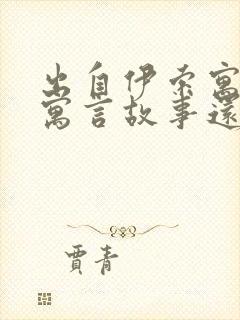 出自伊索寓
寓言故事還
賈青